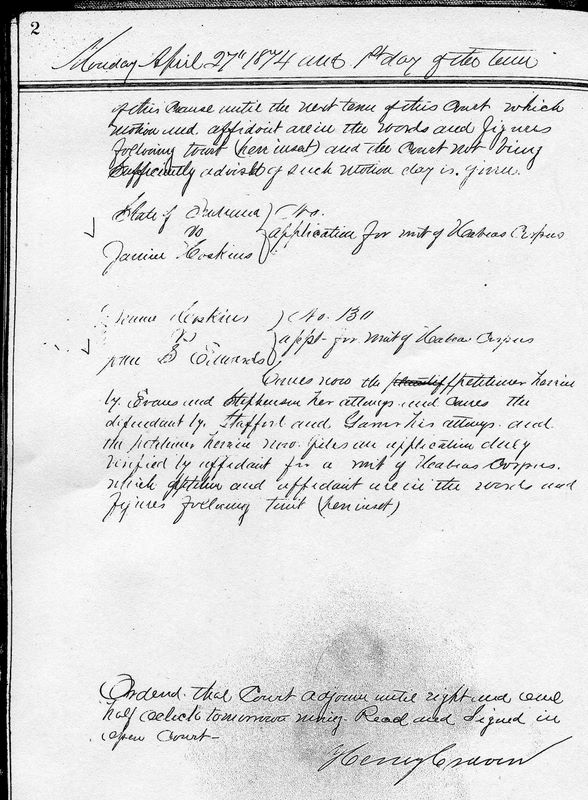 2
Monday April 27th 1874 and 1st day of the term
of this Cause until the next term of this Court which
motion and affidavit are in the words and figures
following towit (here inset) and the Court not being
Sufficiently advised of such motion day is given.
State of Indiana ) No.
vs ) application for writ of Habeas Corpus
Hoskins )
Hoskins ) No. 130
vs ) appt for writ of Habeas Corpus
B Edwards )
Comes now the plaintiff petitioner herein
by Evans and Stephenson her attorneys and comes the
defendant by Stafford and his attorneys and
the petitioner herein now files an application duly
verified by affidavit for a writ of Habeas Corpus.
which petition and affidavit are in the words and
figures following towit (here inset)
Ordered that Court adjourn until eight and one
half oclock tomorrow morning. Read and Signed in
open Court-
Henry Craven